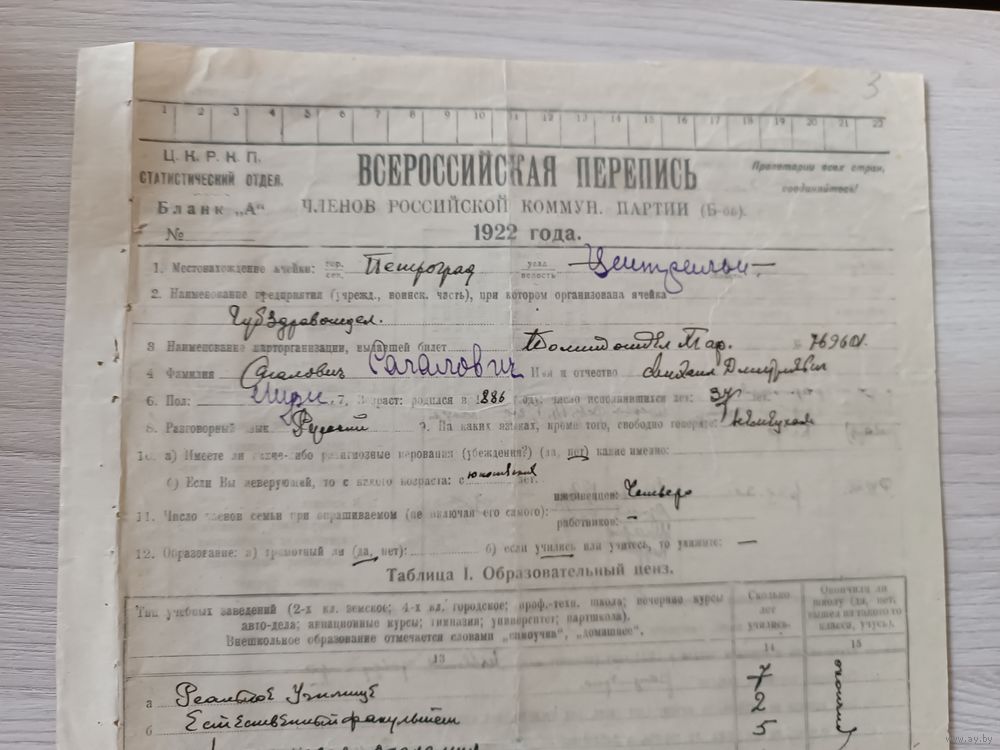 3
1 2 3 4 5 6 7 8 9 10 11 12 13 14 15 16 17 18 19 20 21 22
Ц. К. Р. К. П.
СТАТИСТИЧЕСКИЙ ОТДЕЛ.
Бланк „А“
№
ВСЕРОССИЙСКАЯ ПЕРЕПИСЬ
ЧЛЕНОВ РОССИЙСКОЙ КОММУН. ПАРТИИ (Б-ов).
1922 года.
Пролетарии всех стран,
соединяйтесь!
1. Местонахождение ячейки: гор. сел. Петроград уезд волость
2. Наименование предприятия (учрежд., воинск. часть), при котором организована ячейка
Губздравотдел.
3 Наименование парторганизации, выдавшей билет № 769601
4 Фамилия Сагалович Сагалович Имя и отчество Михаил Дмитриевич
6. Пол: 7. Возраст: родился в 1886 году; число исполнившихся лет: 37 лет.
8. Разговорный язык Русский 9. На каких языках, кроме того, свободно говорите:
10. а) Имеете ли какие-либо религиозные верования (убеждения?) (да, нет) какие именно:
б) Если Вы неверующий, то с какого возраста: с лет.
11. Число членов семьи при опрашиваемом (не включая его самого):
иждивенцев: Четверо
работников: –
12. Образование: а) грамотный ли (да, нет): б) если учились или учитесь, то укажите: —
Таблица I. Образовательный ценз.
Тип учебных заведений (2-х кл. земское; 4-х кл. городское; проф.-техн. школа; вечерние курсы
авто-дела; авиационные курсы; гимназия; университет; партшкола).
Внешкольное образование отмечается словами „самоучка“, „домашнее“.
Сколько
лет
учились.
Окончили ли
школу (да, нет,
вышел из такого то
класса, учусь).
13 14 15
а Реальное Училище 7
б Естественный факультет 2
5
www.ay.by